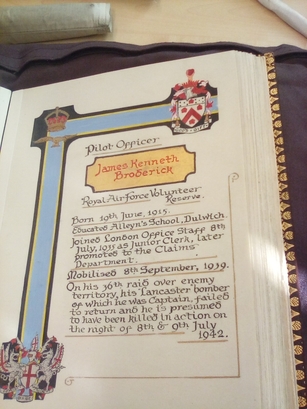 Pilot Officer
James Kenneth
Broderick
Royal Air Force Volunteer
Reserve.
Born 19th June, 1915.
Educated Alleyn's School, Dulwich.
Joined London Office Staff 8th
July, 1935 as Junior Clerk, later
promoted to the Claims
Department.
Mobilised 8th September, 1939.
On his 36th raid over enemy
territory, his Lancaster bomber
of which he was Captain, failed
to return and he is presumed
to have been killed in action on
the night of 8th & 9th July
1942.